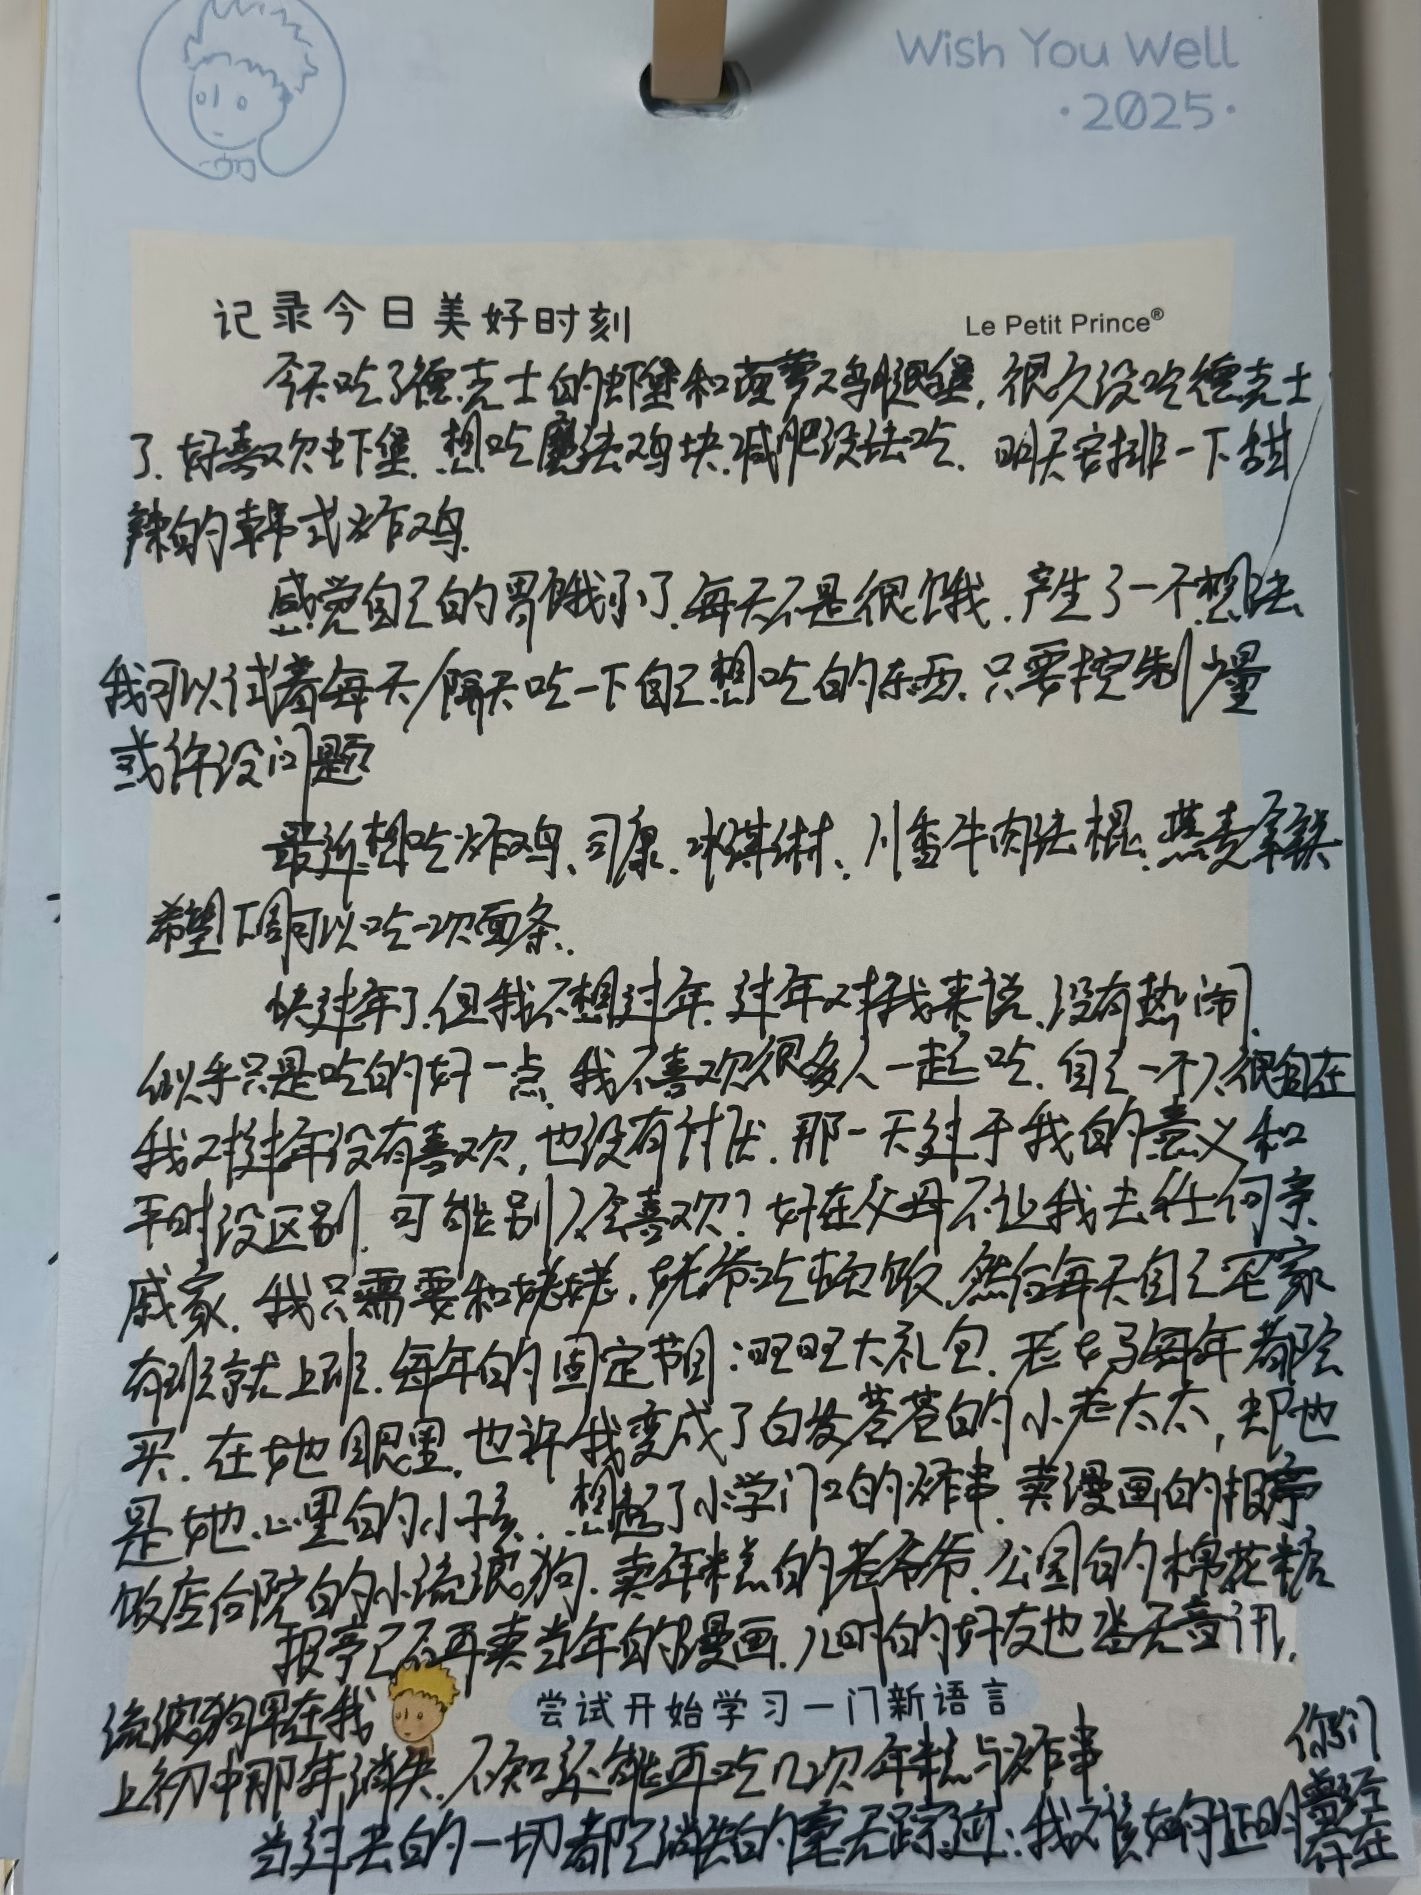 Wish You Well
·2025·
记录今日美好时刻
Le Petit Prince®
今天吃了德克士的虾堡和菠萝鸡腿堡，很久没吃德克士
了．好喜欢虾堡．想吃魔法鸡块．减肥没法吃．明天安排一下甜
辣的韩式炸鸡．
感觉自己的胃饿小了．每天不是很饿．产生了一个想法
我可以试着每天/隔天吃一下自己想吃的东西．只要控制少量
或许没问题
最近想吃炸鸡、司康、冰淇淋、川香牛肉法棍、燕麦拿铁
希望下周可以吃一次面条．
快过年了．但我不想过年．过年对我来说．没有热闹．
似乎只是吃的好一点．我不喜欢很多人一起吃．自己一个人很自在
我对过年没有喜欢，也没有讨厌．那一天过于我的意义和
平时没区别．可能别人会喜欢？好在父母不让我去任何亲
戚家．我只需要和姥姥．姥爷吃顿饭．然后每天自己宅家
有班就上班．每年的固定节目：旺旺大礼包．老妈每年都会
买．在她眼里，也许我变成了白发苍苍的小老太太，却也
是她心里的小孩．想起了小学门口的炸串．卖漫画的报亭
饭店后院的小流浪狗．卖年糕的老爷爷．公园的棉花糖
报亭已不再卖当年的漫画．儿时的好友也杳无音讯．
流浪狗早在我
尝试开始学习一门新语言
上初中那年消失．不知还能再吃几次年糕与炸串．
当过去的一切都已消失的毫无踪迹：我又该如何证明
你们
曾经
存在